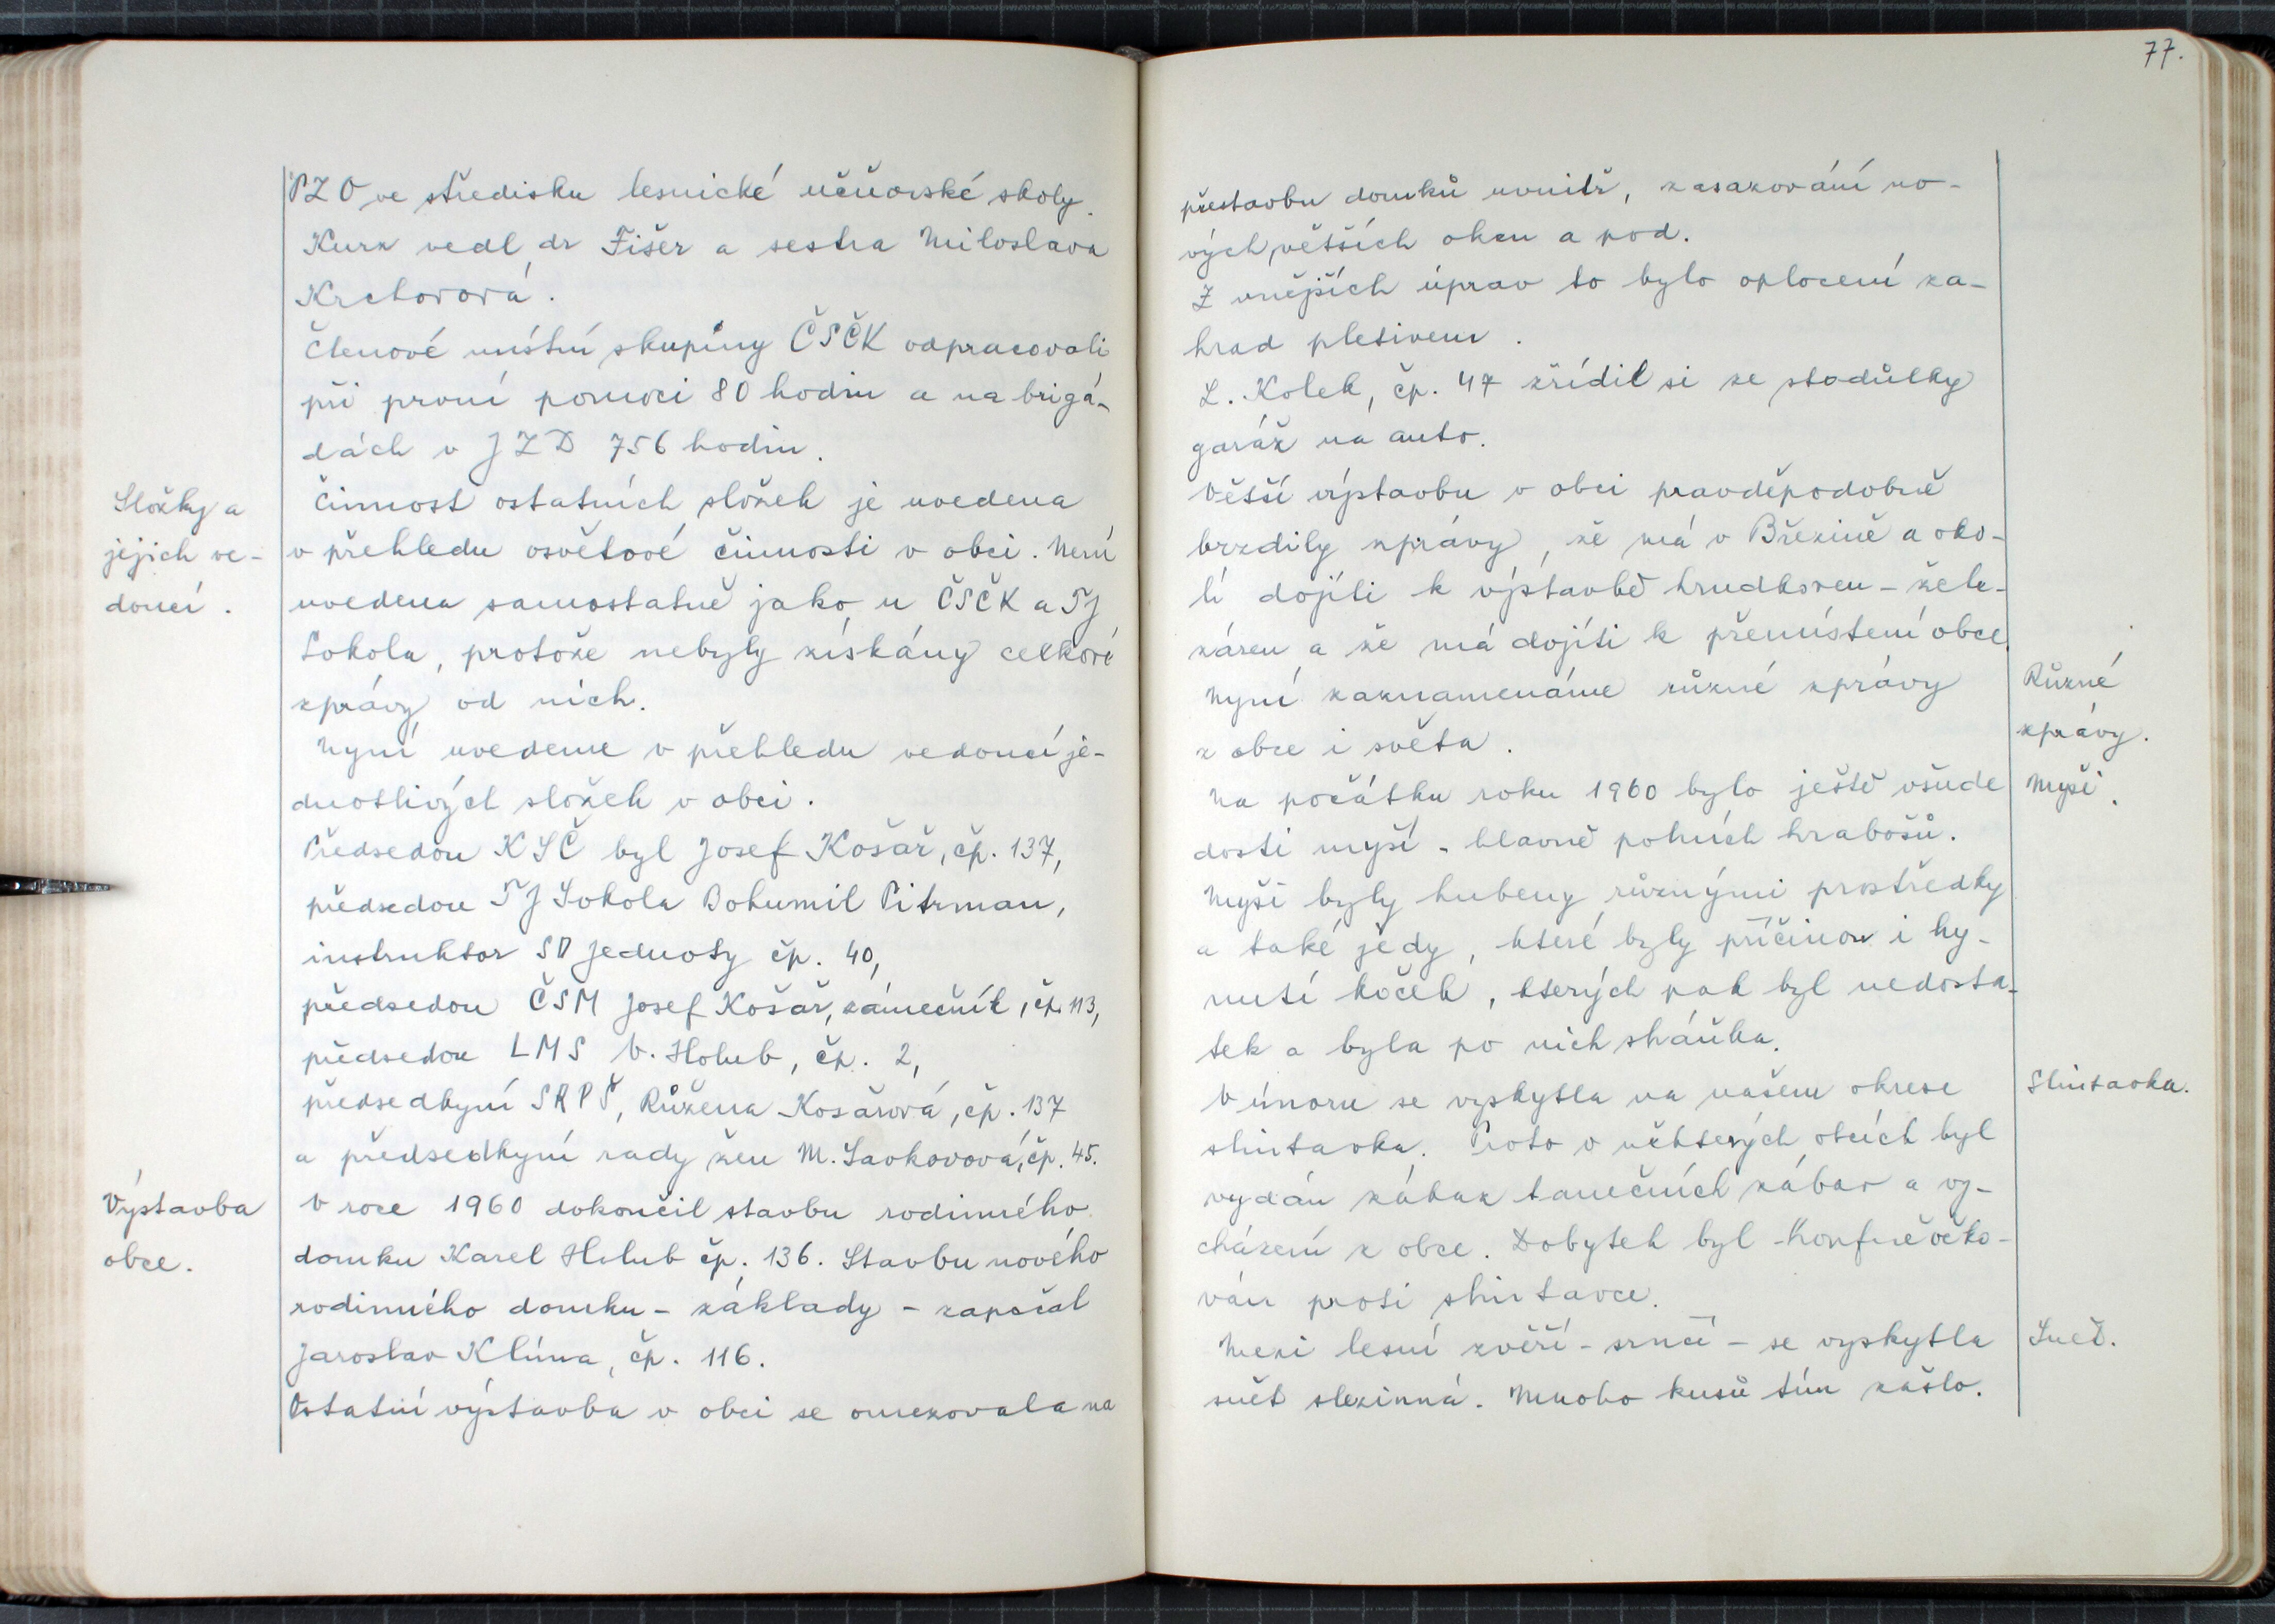 PZO ve středisku lesnické učňovské školy.
Kurz vedl dr Fišer a sestra Miloslava
Krchovová.
Členové místní skupiny ČSČK odpracovali
při první pomoci 80 hodin a na brigá-
dách v JZD 756 hodin.
Složky a
jejich ve-
doucí.
Činnost ostatních složek je uvedena
v přehledu osvětové činnosti v obci. Není
uvedena samostatně jako u ČSČK a TJ
Sokola, protože nebyly získány celkové
zprávy od nich.
Nyní uvedeme v přehledu vedoucí je-
dnotlivých složek v obci.
Předsedou KSČ byl Josef Košař, čp. 137,
předsedou TJ Sokola Bohumil Pitrman,
instruktor SD Jednoty čp. 40,
předsedou ČSM Josef Košař, zámečník, čp. 113,
předsedou LMS V. Holub, čp. 2,
předsedkyní SRPŠ, Růžena Košařová, čp. 137
a předsedkyní rady žen M. Savkovová, čp. 45.
Výstavba
obce.
V roce 1960 dokončil stavbu rodinného
domku Karel Holub čp. 136. Stavbu nového
rodinného domku - základy - započal
Jaroslav Klíma, čp. 116.
Ostatní výstavba v obci se omezovala na
77.
přestavbu domků uvnitř, zasazování no-
vých, větších oken a pod.
Z vnějších úprav to bylo oplocení za-
hrad pletivem.
L. Kolek, čp. 47 zřídil si ze stodůlky
garáž na auto.
Větší výstavbu v obci pravděpodobně
brzdily zprávy, že má v Březině a oko-
lí dojíti k výstavbě hrudkoven - žele-
záren a že má dojíti k přemístění obce.
Různé
zprávy.
Nyní zaznamenáme různé zprávy
z obce i světa.
Myši.
Na počátku roku 1960 bylo ještě všude
dosti myší - hlavně polních hrabošů.
Myši byly hubeny různými prostředky
a také jedy, které byly příčinou i hy-
nutí koček, kterých pak byl nedosta-
tek a byla po nich sháňka.
Slintavka.
V únoru se vyskytla na našem okrese
slintavka. Proto v některých obcích byl
vydán zákaz tanečních zábav a vy-
cházení z obce. Dobytek byl konfině očko-
ván proti slintavce.
Sněť.
Mezi lesní zvěří - srnčí - se vyskytla
sněť slezinná. Mnoho kusů tím zašlo.